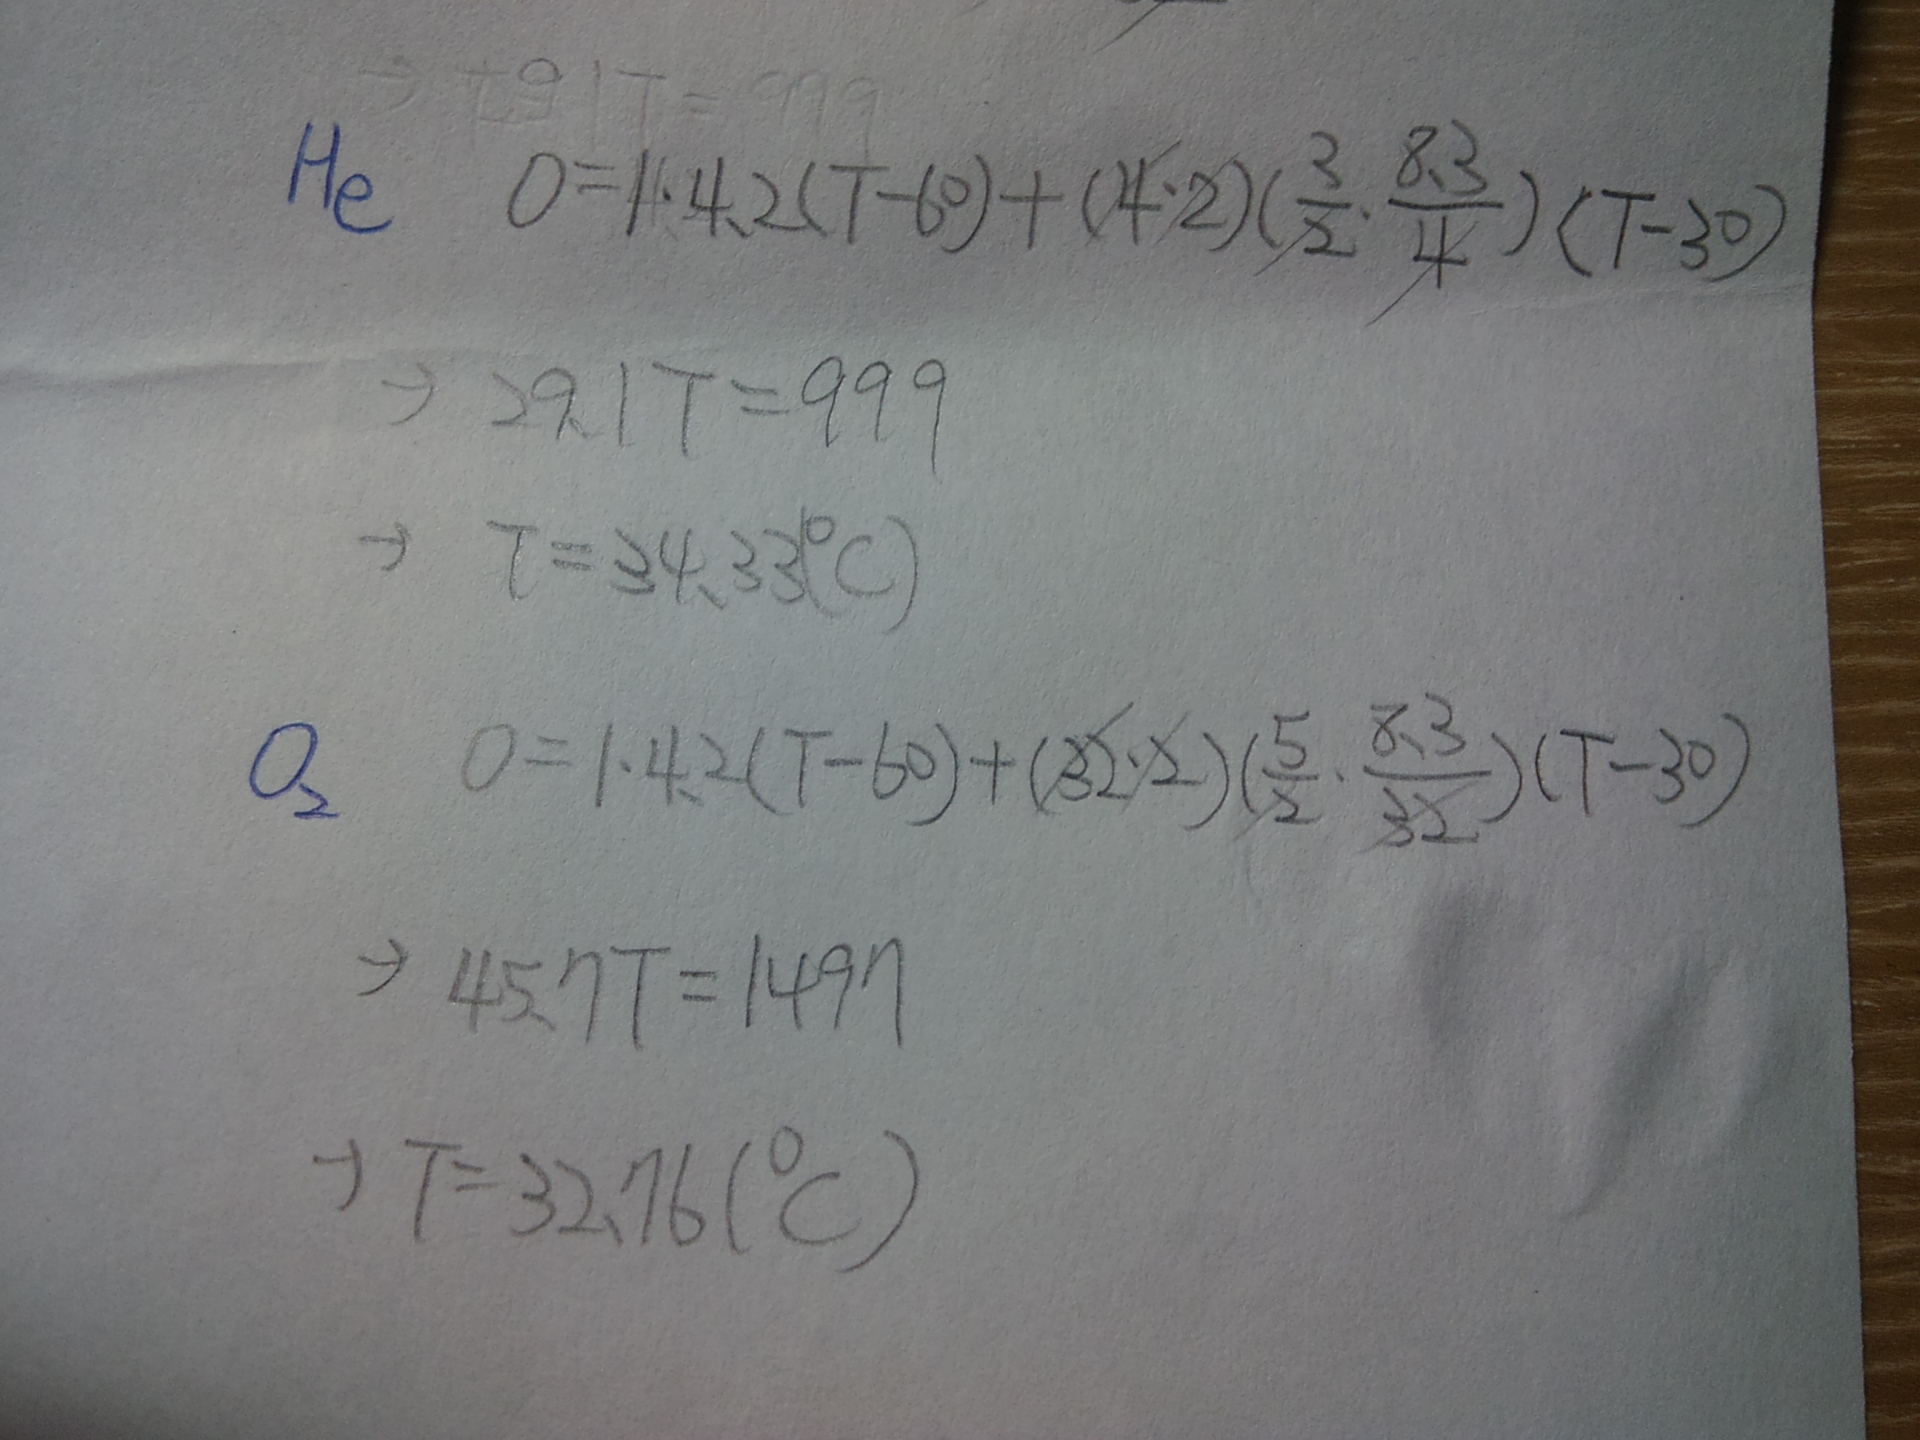 He 0=1·4.2(T-60)+(4·2)(3/2·8.3/4)(T-30)
→ 29.1T=999
→ T=34.33(°C)
O₂ 0=1·4.2(T-60)+(32·2)(5/2·8.3/32)(T-30)
→ 45.7T=1497
→ T=32.76(°C)